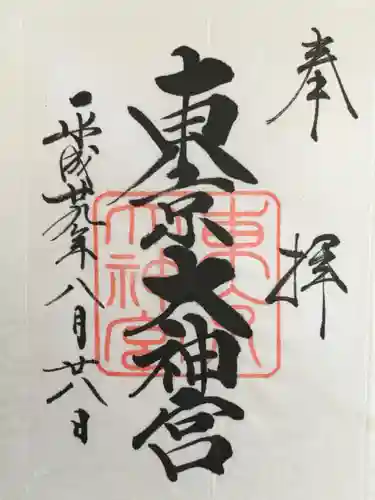 奉拝
東京大神宮
平成廿九年八月廿八日
東京大神宮